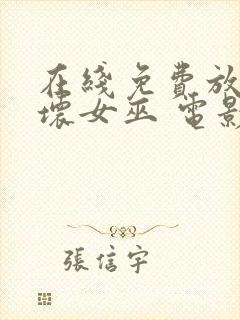 在綫免費放
壞女巫 電影
張信宇